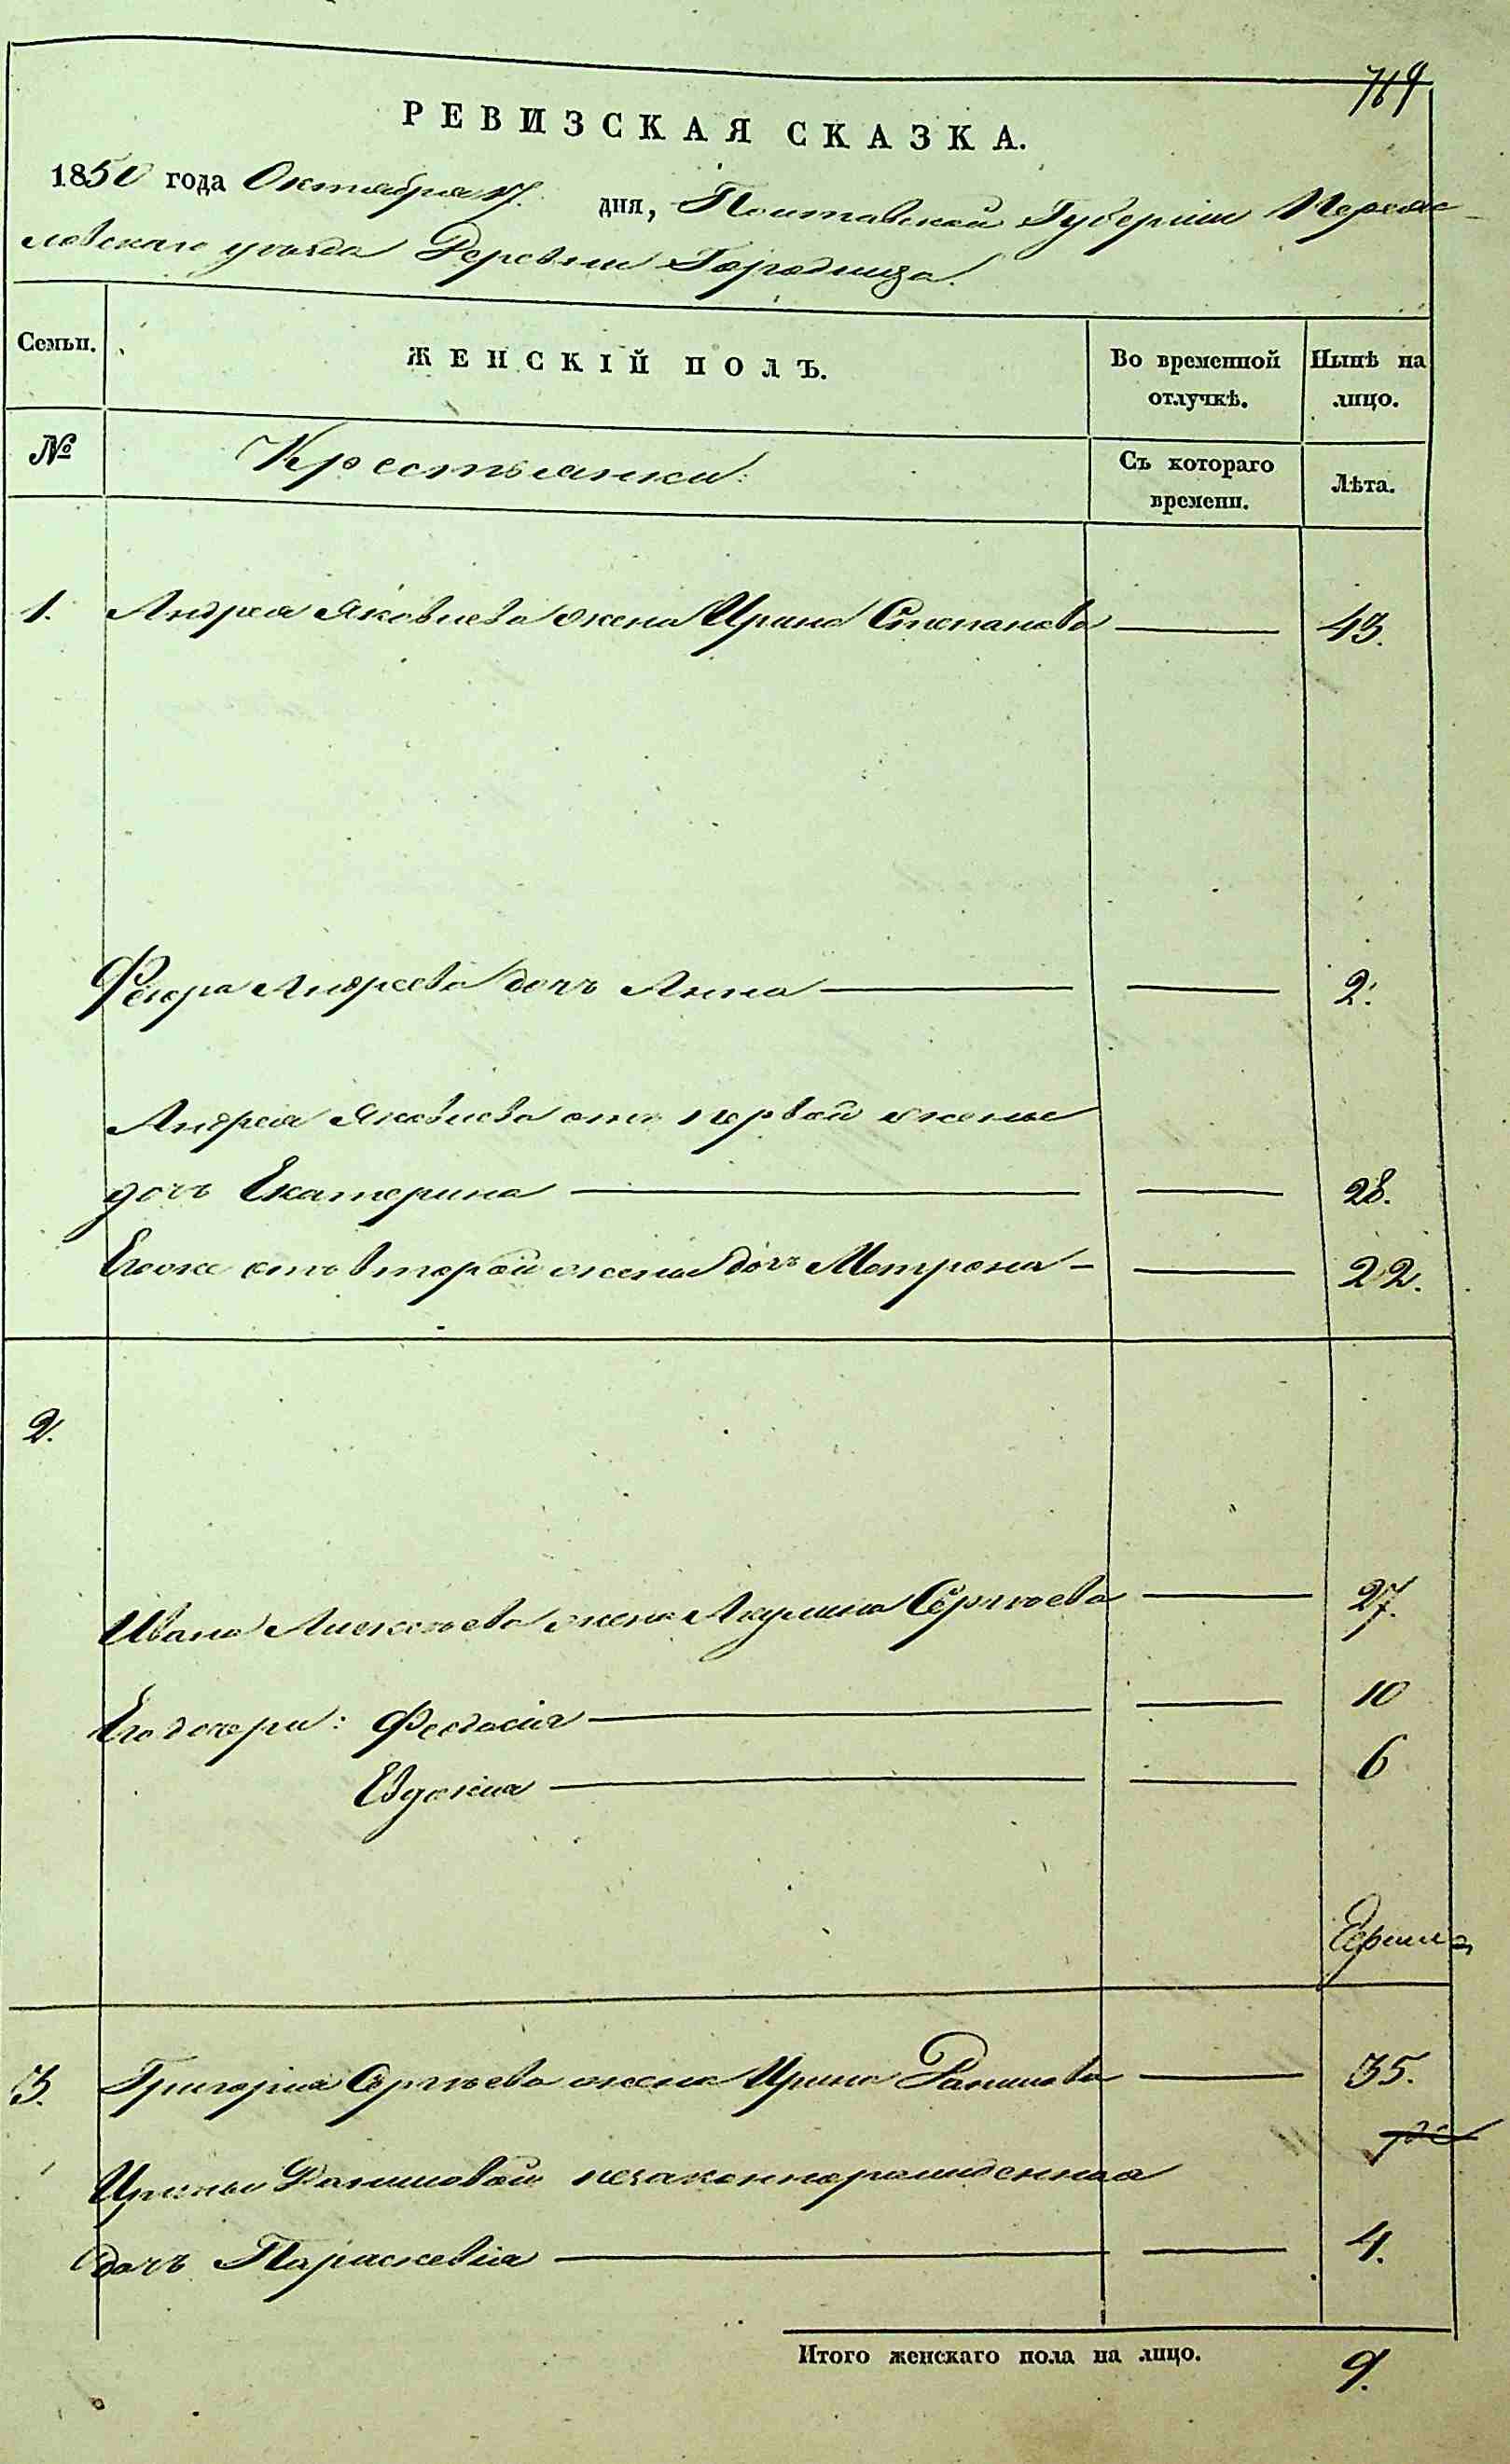 719
РЕВИЗСКАЯ СКАЗКА.
1850 года Октября 17. дня, Полтавской Губерніи Переяс-
лавскаго уѣзда Деревни Городища.
Семьи. ЖЕНСКІЙ ПОЛЪ. Во временной отлучкѣ. Нынѣ на лицо.
№ Крестьянки: Съ котораго времени. Лѣта.
1. Андрея Яковлева жена Ирина Степанова — 43.
Андреева дочь Анна — — 2.
Андрея Яковлева отъ первой жены
дочь Екатерина — — 28.
Егоже отъ второй жены дочь Матрона — — 22.
2.
Ивана Алексѣева жена Акулина Сергѣева — 27.
Его дочери: Феодосія — — 10
Евдокія — — 6
3. Григорія Сергѣева жена Ирина Данилова — 35.
Ирины Даниловой незаконнорожденная
дочь Параскевія — — 4.
Итого женскаго пола на лицо. 9.